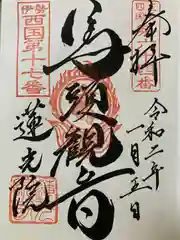 奉拝
令和二年
一月五日
馬頭観音
伊勢
西国第十七番
蓮光院